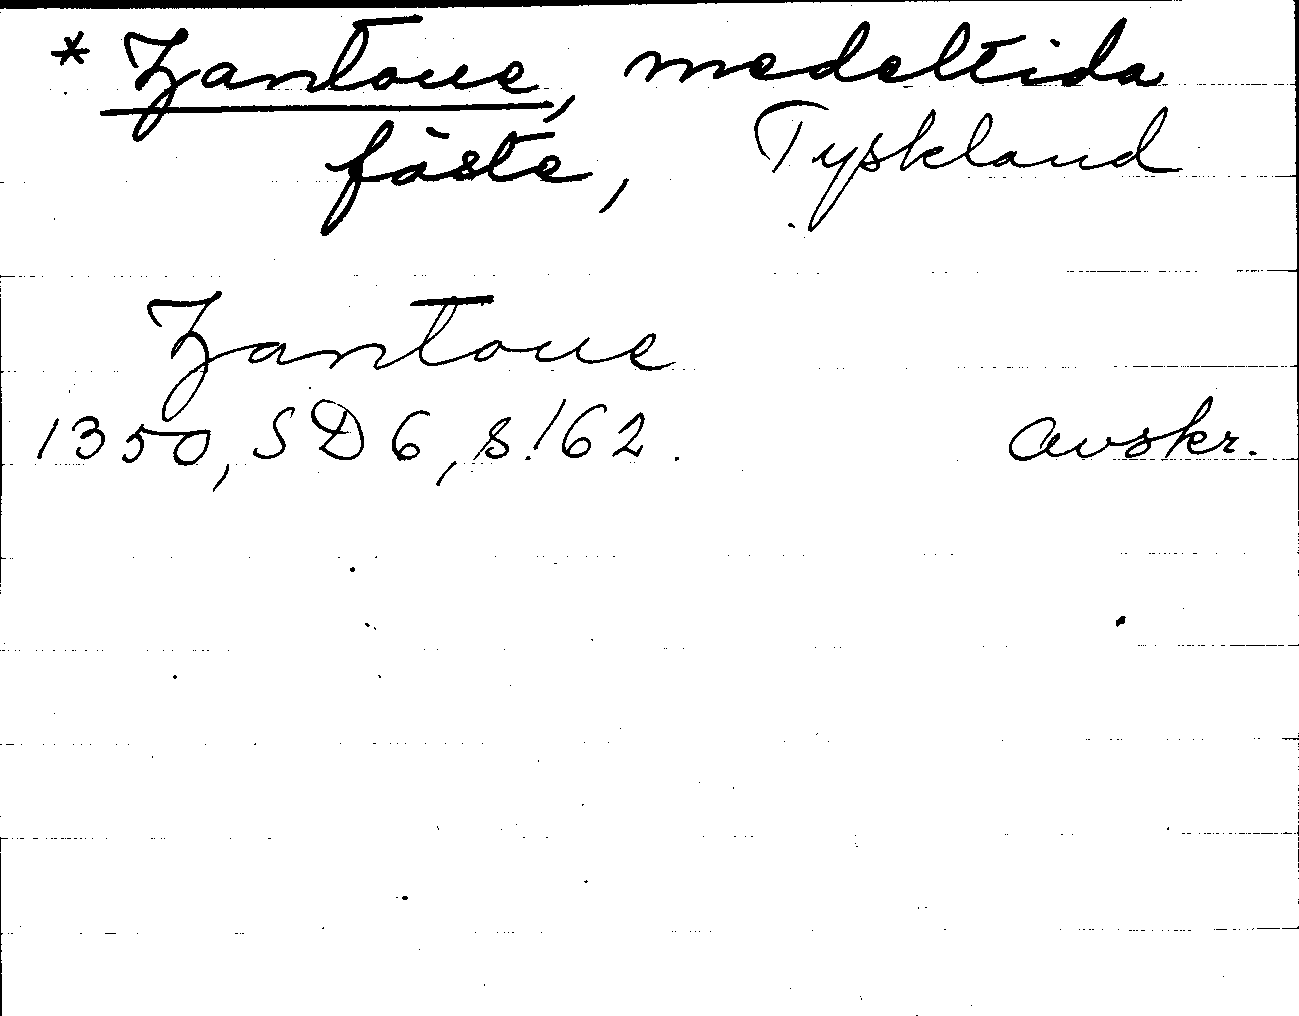 * Zantoue, medeltida
fäste, Tyskland
Zantoue
1350, SD 6, s. 162.
avskr.